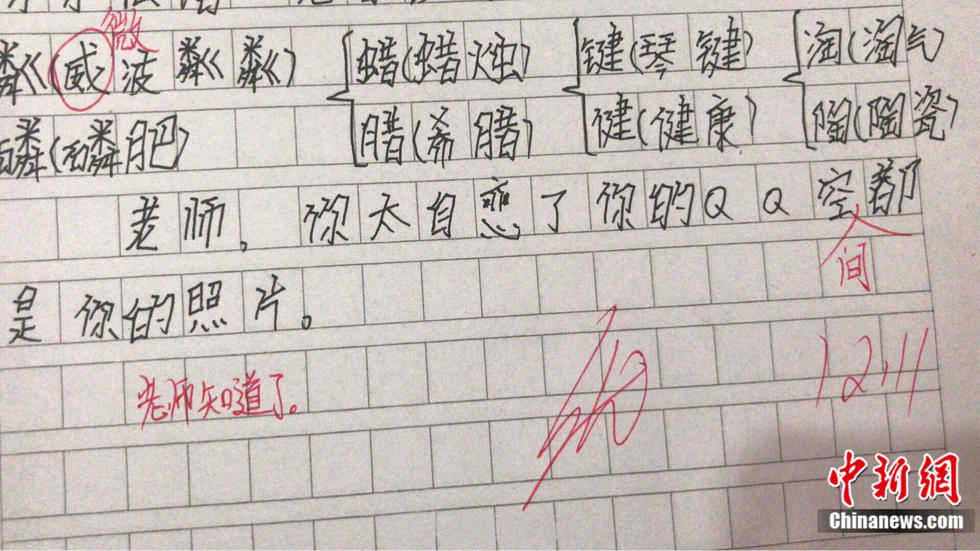 微
粼(威波粼粼) 蜡(蜡烛) 键(琴键) 淘(淘气
磷(磷肥) 腊(希腊) 健(健康) 陶(陶瓷)
老师,你太自恋了你的QQ空都
间
是你的照片。
老师知道了。 12.11
中新網
Chinanews.com